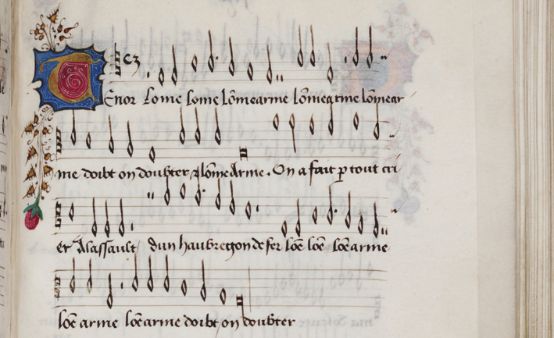 Tenor Lome lome lõmearme lõmearme lõmear
me doibt on doubter Alõme Arme. On a fait p tout cri
er Alassault dun haubregon de fer lõe lõe lõe arme
lõe arme lõe arme doibt on doubter